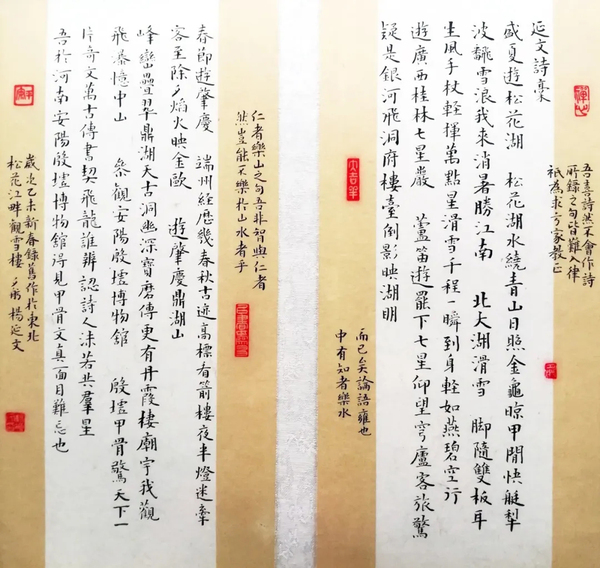 吾喜詩然不會作詩
所錄之句皆難入律
祇為求方家教正
延文詩稾
盛夏遊松花湖 松花湖水繞青山日照金龜晾甲閒快艇犁
波翻雪浪我來消暑勝江南 北大湖滑雪 脚隨雙板耳
生風手杖輕揮萬點星滑雪千程一瞬到身輕如燕碧空行
遊廣西桂林七星巖 蘆笛遊罷下七星仰望穹廬客旅驚
疑是銀河飛洞府樓臺倒影映湖明
而已矣論語雍也
中有知者樂水
仁者樂山之句吾非智與仁者
然豈能不樂於山水者乎
春節遊肇慶 端州經歷幾春秋古迹高標看箭樓夜半燈迷牽
客至除夕焰火映金歐 遊肇慶鼎湖山
峰巒疊翠鼎湖天古洞幽深寶磨傳更有丹霞棲廟宇我觀
飛瀑憶中山 叅觀安陽殷墟博物館 殷墟甲骨驚天下一
片奇文萬古傳書契飛龍誰辨認詩人沫若共羣星
吾於河南安陽殷墟博物館得見甲骨文真面目難忘也
歲次乙未新春錄舊作於東北
松花江畔觀雪樓 楊延文